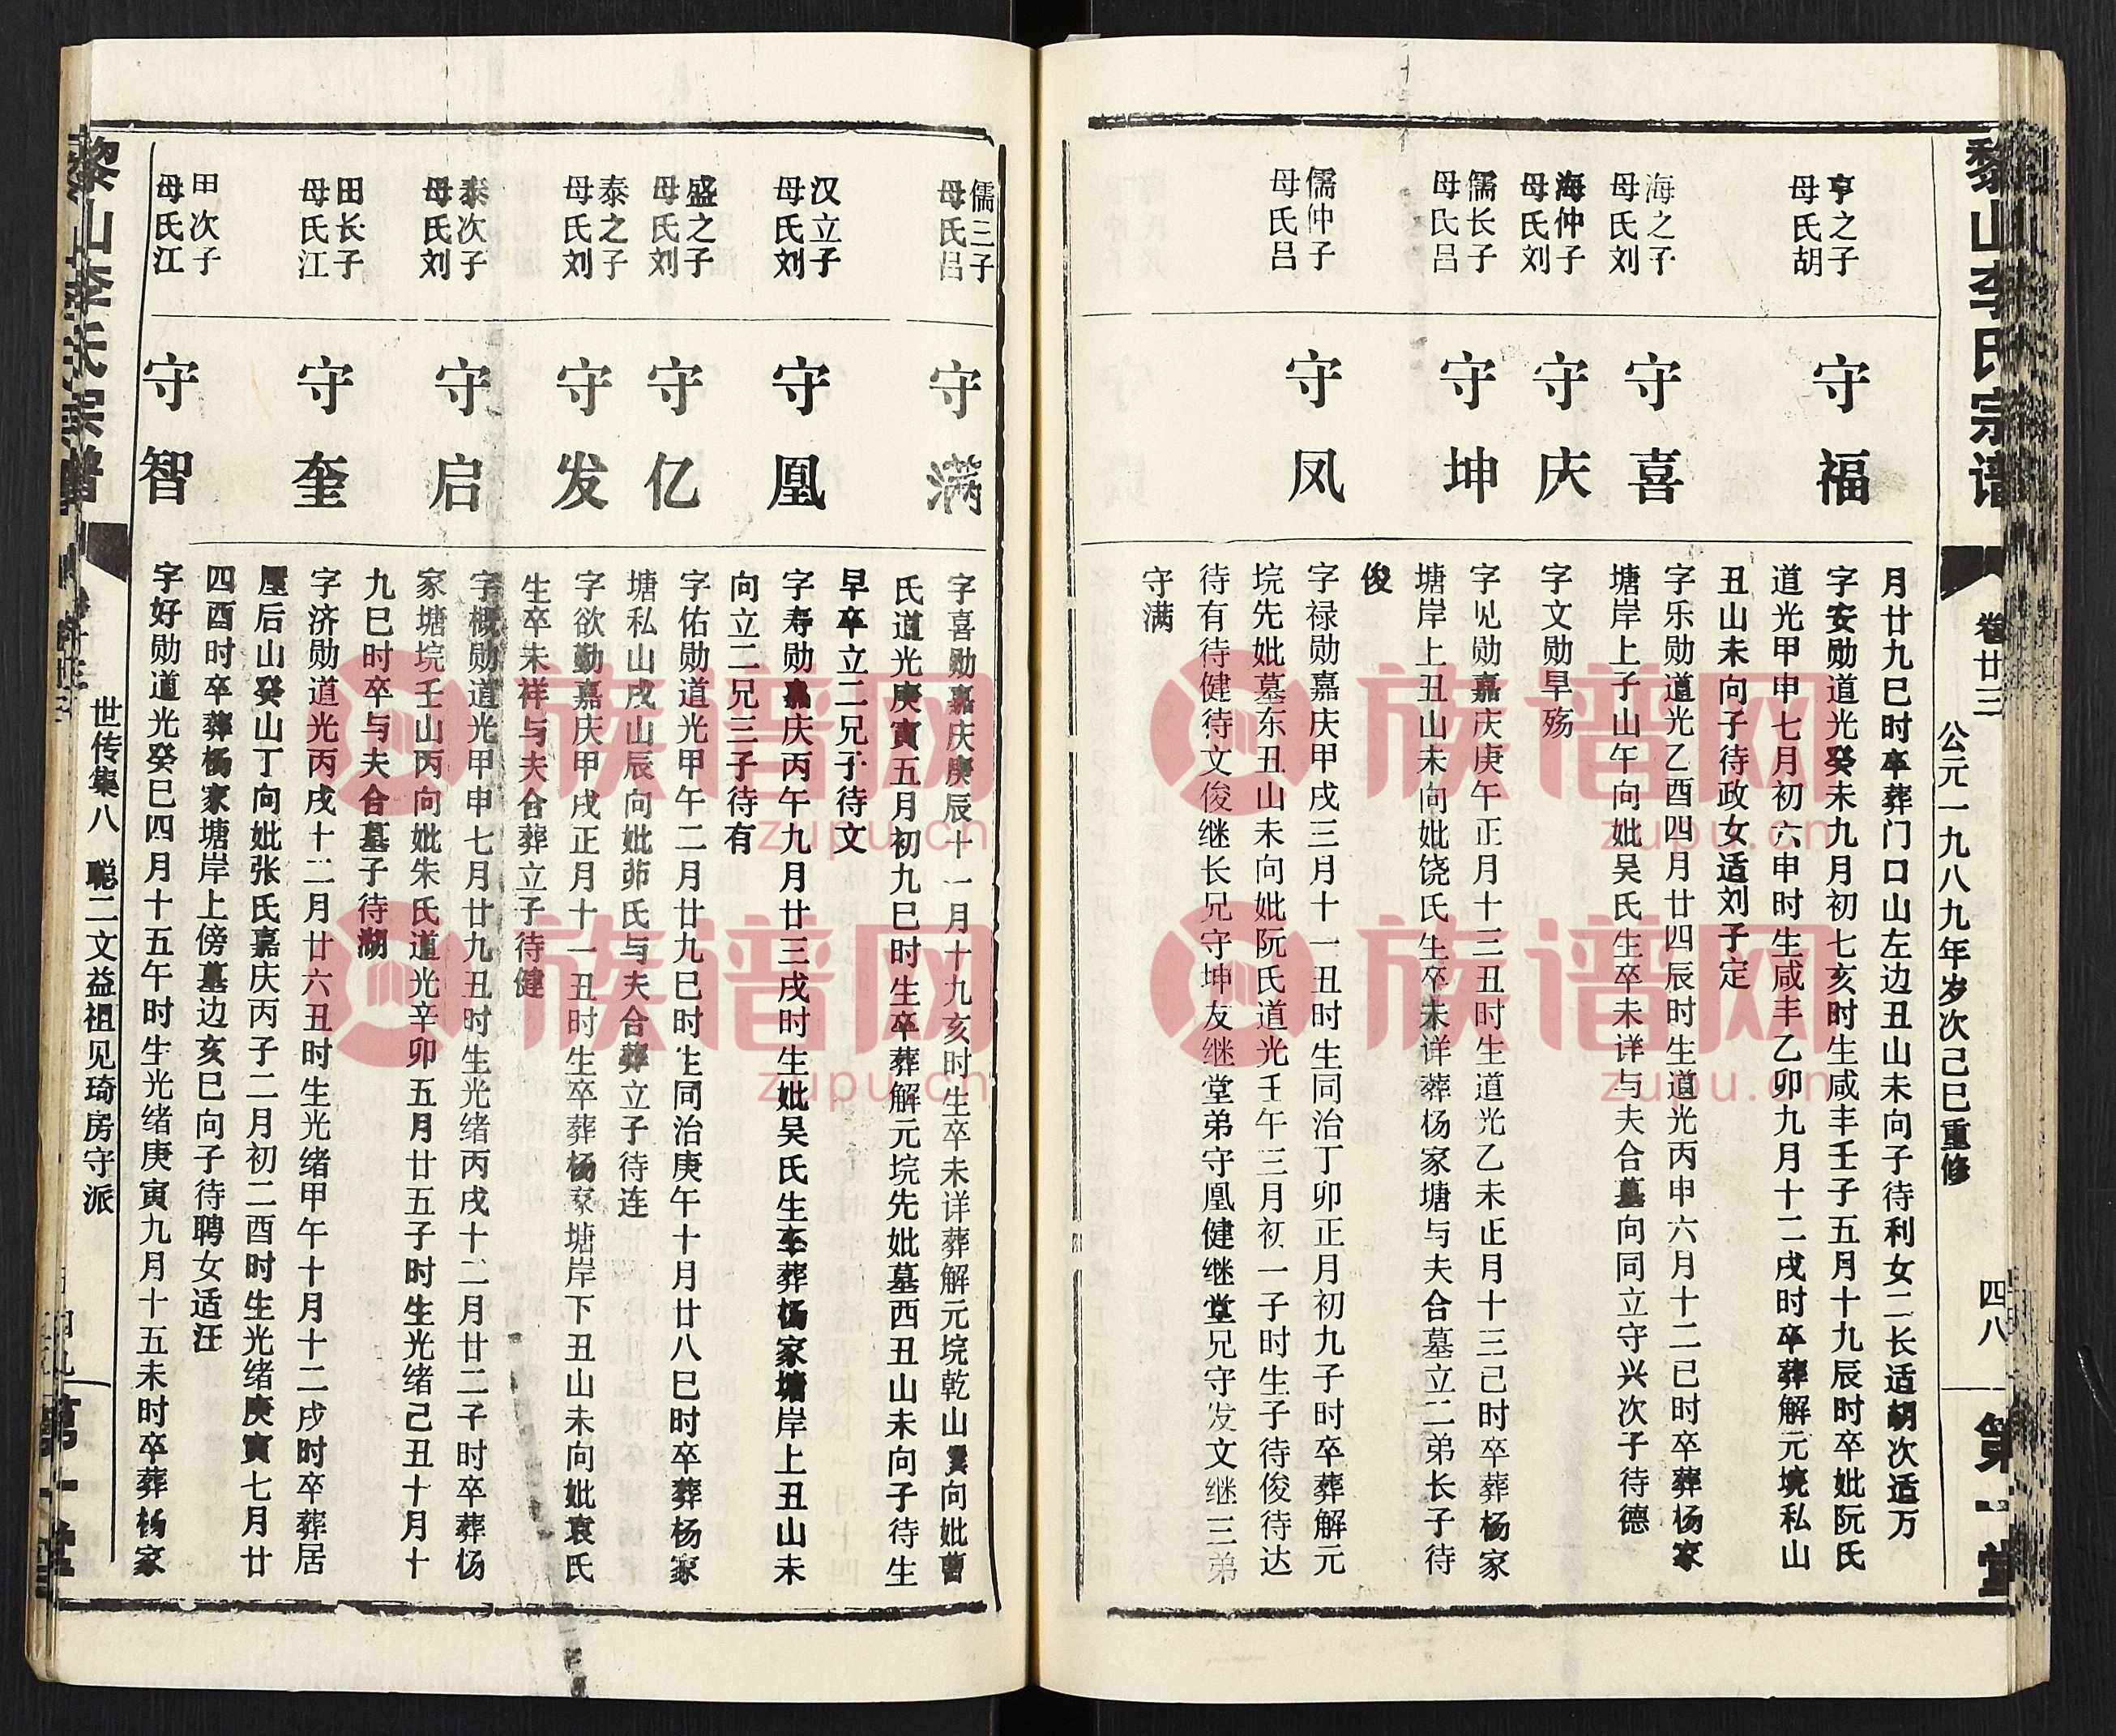 黎山李氏宗谱
卷廿三
公元一九八九年岁次己巳重修
四八
第一堂
亨之子
母氏胡
守福
月廿九巳时卒葬门口山左边丑山未向子待利女二长适胡次适万
字安勋道光癸未九月初七亥时生咸丰壬子五月十九辰时卒妣阮氏
道光甲申七月初六申时生咸丰乙卯九月十二戌时卒葬解元境私山
丑山未向子待政女适刘子定
海之子
母氏刘
守喜
字乐勋道光乙酉四月廿四辰时生道光丙申六月十二巳时卒葬杨家
塘岸上子山午向妣吴氏生卒未详与夫合墓向同立守兴次子待德
海仲子
母氏刘
守庆
字文勋早殇
儒长子
母氏吕
守坤
字见勋嘉庆庚午正月十三丑时生道光乙未正月十三己时卒葬杨家
塘岸上丑山未向妣饶氏生卒未详葬杨家塘与夫合墓立二弟长子待
俊
儒仲子
母氏吕
守凤
字禄勋嘉庆甲戌三月十一丑时生同治丁卯正月初九子时卒葬解元
垸先妣墓东丑山未向妣阮氏道光壬午三月初一子时生子待俊待达
待有待健待文俊继长兄守坤友继堂弟守凰健继堂兄守发文继三弟
守满
儒三子
母氏吕
守满
字喜勋嘉庆庚辰十一月十九亥时生卒未详葬解元垸乾山巽向妣曹
氏道光庚寅五月初九巳时生卒葬解元垸先妣墓西丑山未向子待生
早卒立二兄子待文
汉立子
母氏刘
守凰
字寿勋嘉庆丙午九月廿三戌时生妣吴氏生卒葬杨家塘岸上丑山未
向立二兄三子待有
盛之子
母氏刘
守亿
字佑勋道光甲午二月廿九巳时生同治庚午十月廿八巳时卒葬杨家
塘私山戌山辰向妣茆氏与夫合葬立子待连
泰之子
母氏刘
守发
字欲勤嘉庆甲戌正月十一丑时生卒葬杨家塘岸下丑山未向妣袁氏
生卒未祥与夫合葬立子待健
泰次子
母氏刘
守启
字概勋道光甲申七月廿九丑时生光绪丙戌十二月廿二子时卒葬杨
家塘垸壬山丙向妣朱氏道光辛卯五月廿五子时生光绪己丑十月十
九巳时卒与夫合墓子待湖
田长子
母氏江
守奎
字济勋道光丙戌十二月廿六丑时生光绪甲午十月十二戌时卒葬居
屋后山癸山丁向妣张氏嘉庆丙子二月初二酉时生光绪庚寅七月廿
四酉时卒葬杨家塘岸上傍墓边亥巳向子待聘女适汪
甲次子
母氏江
守智
字好勋道光癸巳四月十五午时生光绪庚寅九月十五未时卒葬杨家
黎山李氏宗谱
世传集八 聪二文益祖见琦房守派
第一堂
族谱网
zupu.cn
族谱网
zupu.cn
族谱网
zupu.cn
族谱网
zupu.cn